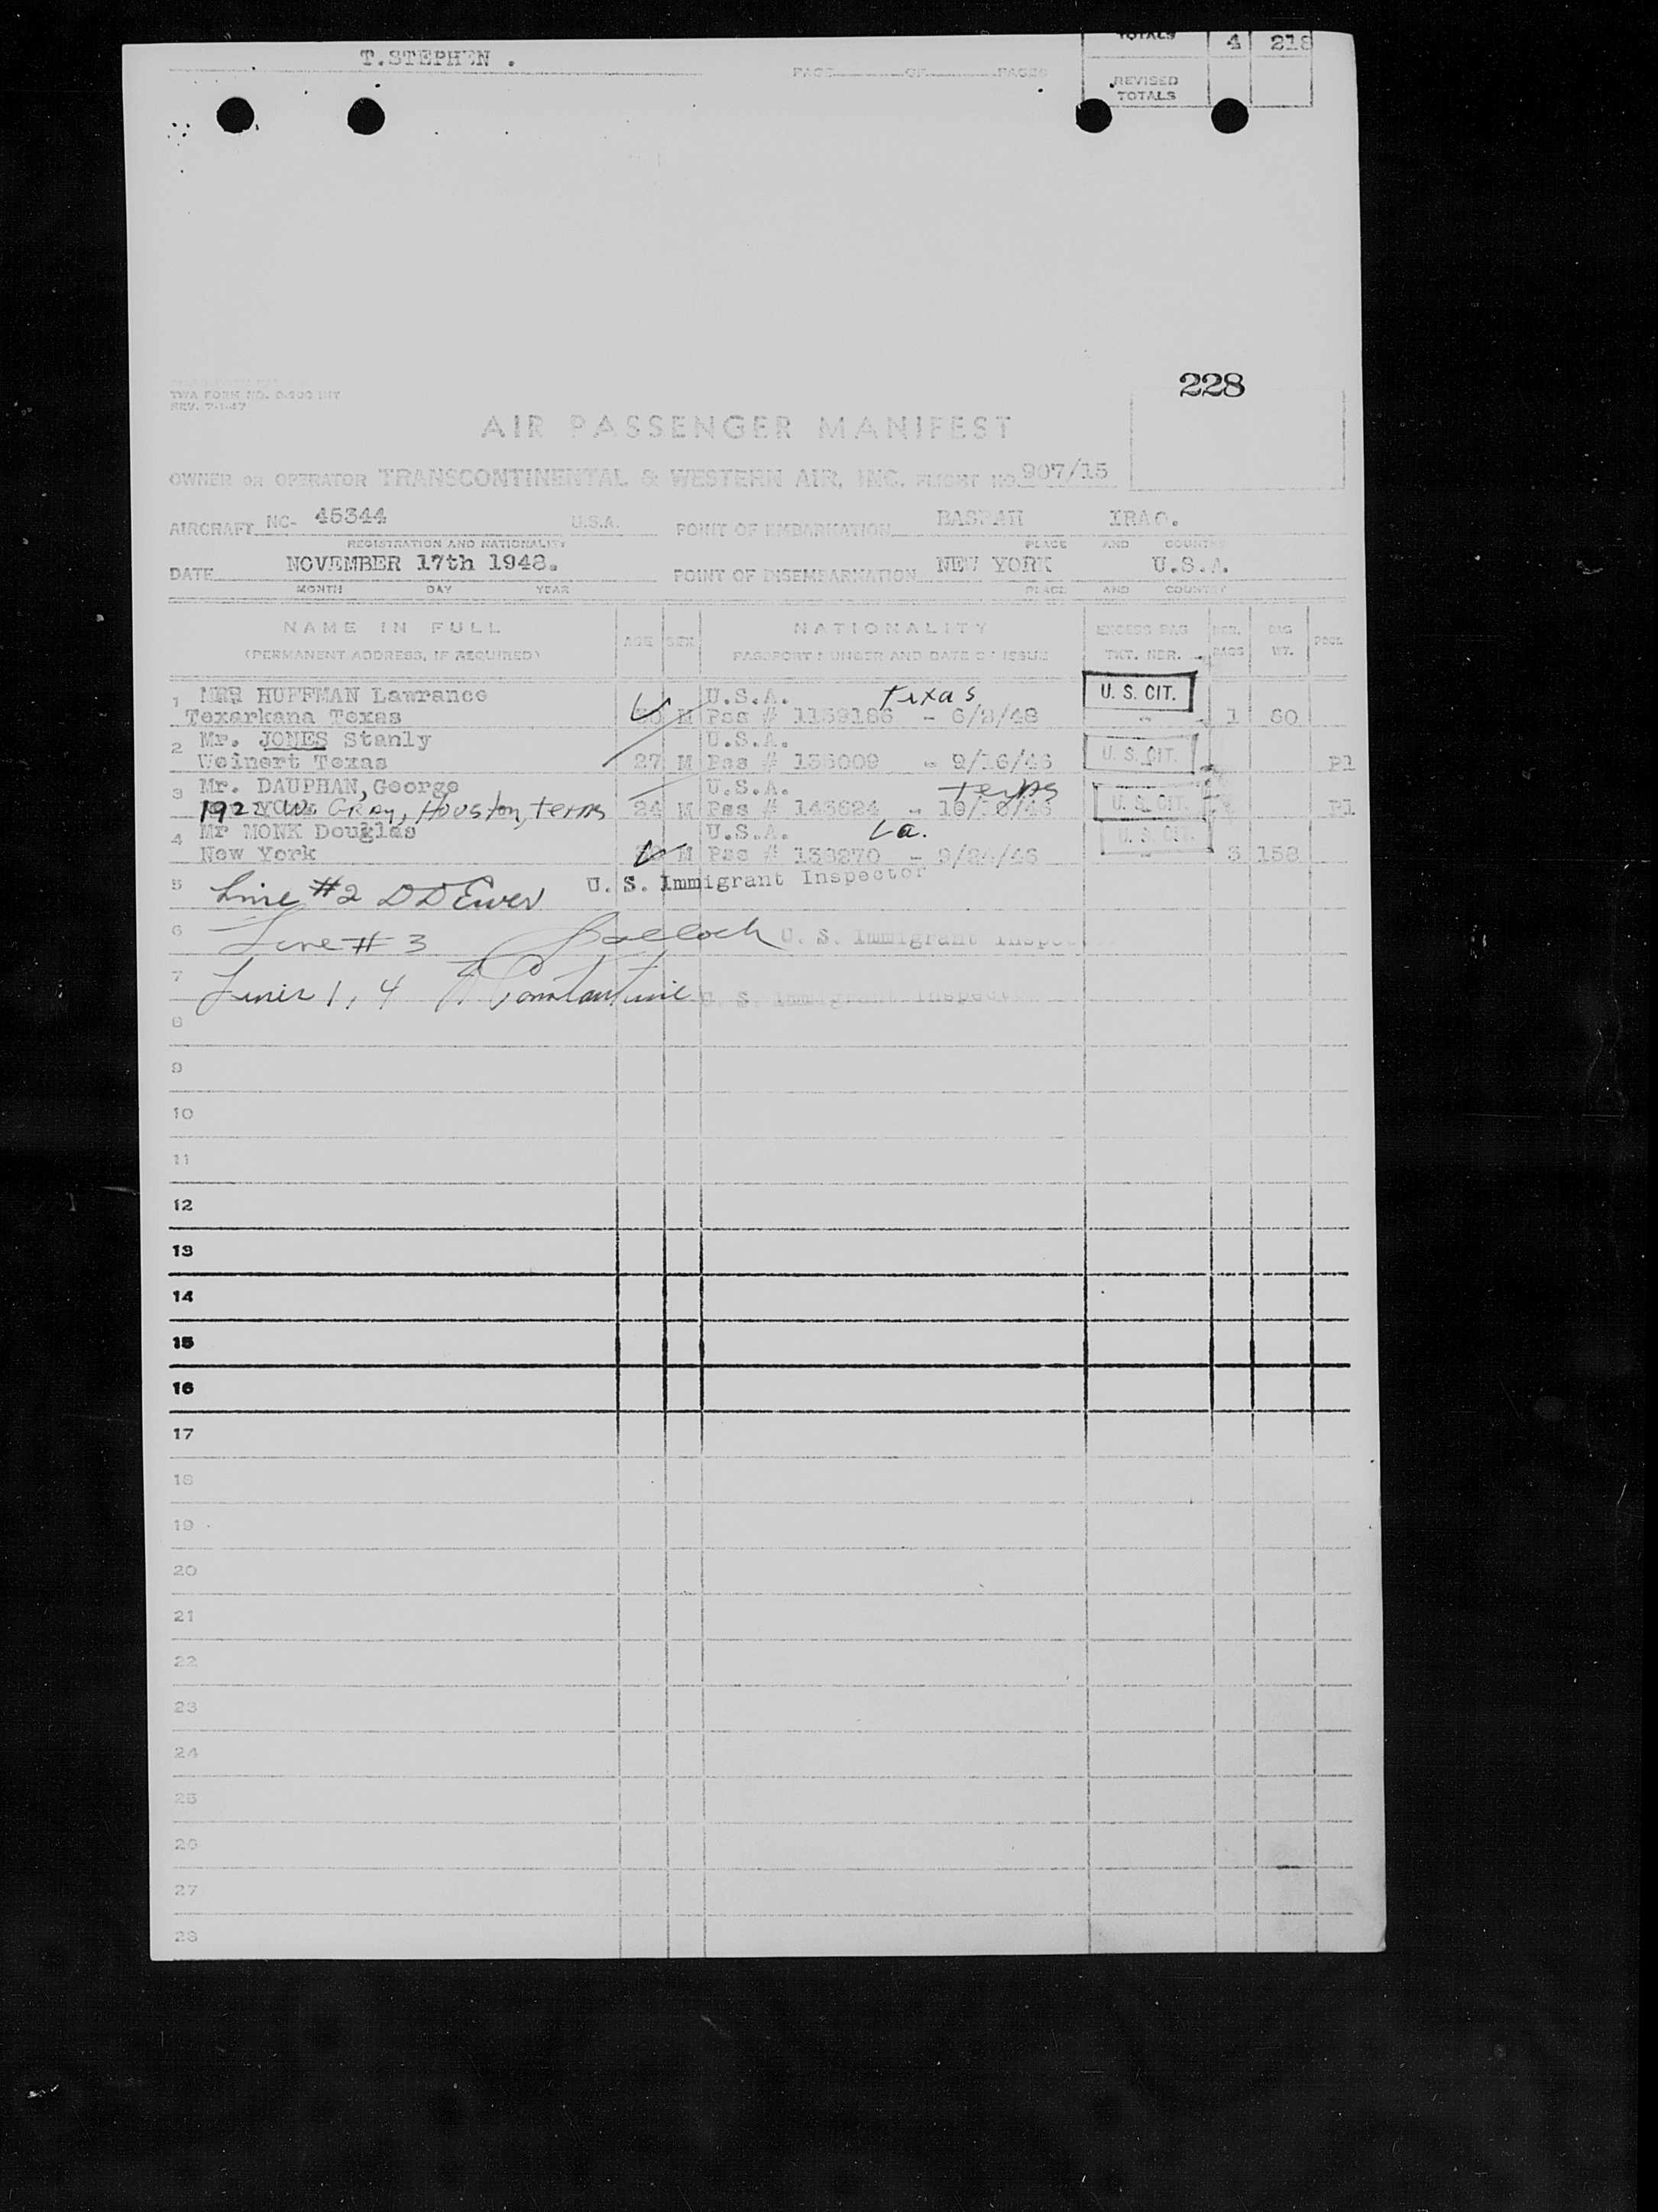 T.STEPHEN .
PAGE OF PAGES
TOTALS 4 218
REVISED TOTALS
228
TWA FORM NO.
REV. 7-1-47
AIR PASSENGER MANIFEST
OWNER OR OPERATOR TRANSCONTINENTAL & WESTERN AIR, INC. FLIGHT NO. 907/15
AIRCRAFT NC- 45344 U.S.A. POINT OF EMBARKATION BASRAH IRAQ.
REGISTRATION AND NATIONALITY PLACE AND COUNTRY
DATE NOVEMBER 17th 1948. POINT OF DISEMBARKATION NEW YORK U.S.A.
MONTH DAY YEAR PLACE AND COUNTRY
NAME IN FULL AGE SEX NATIONALITY EXCESS BAG NBR. BAG
(PERMANENT ADDRESS, IF REQUIRED) PASSPORT NUMBER AND DATE OF ISSUE TKT. NBR. BAGS WT.
1 HUFFMAN Lawrance U.S.A. Texas U. S. CIT.
Texarkana Texas M Pas # 1159186 - 6/8/48 1 60
2 Mr. JONES Stanly U.S.A. U. S. CIT.
Weinert Texas 27 M Pas # - 9/16/46 Pl
3 Mr. DAUPHAN, George U.S.A. Texas U. S. CIT.
W. Gray, Houston, Texas 24 M Pas # - Pl
4 Mr MONK Douglas U.S.A. La. U. S. CIT.
New York M Pas # - 9/24/46 3 158
5 Line #2 U. S. Immigrant Inspector
6 Line # 3 U. S. Immigrant Inspector
7 Lines 1, 4 U. S. Immigrant Inspector
8
9
10
11
12
13
14
15
16
17
18
19
20
21
22
23
24
25
26
27
28